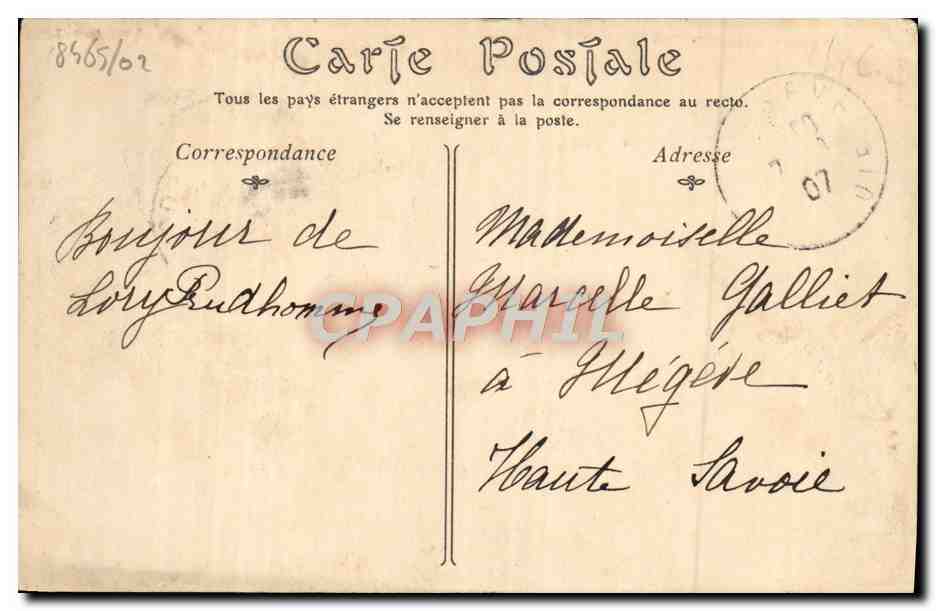 8465/02
Carte Postale
Tous les pays étrangers n'acceptent pas la correspondance au recto.
Se renseigner à la poste.
Correspondance
Adresse
07
Bonjour de
Lory Prudhomme
Mademoiselle
Marcelle Galliet
à Mégéve
Haute Savoie
CPAPHIL